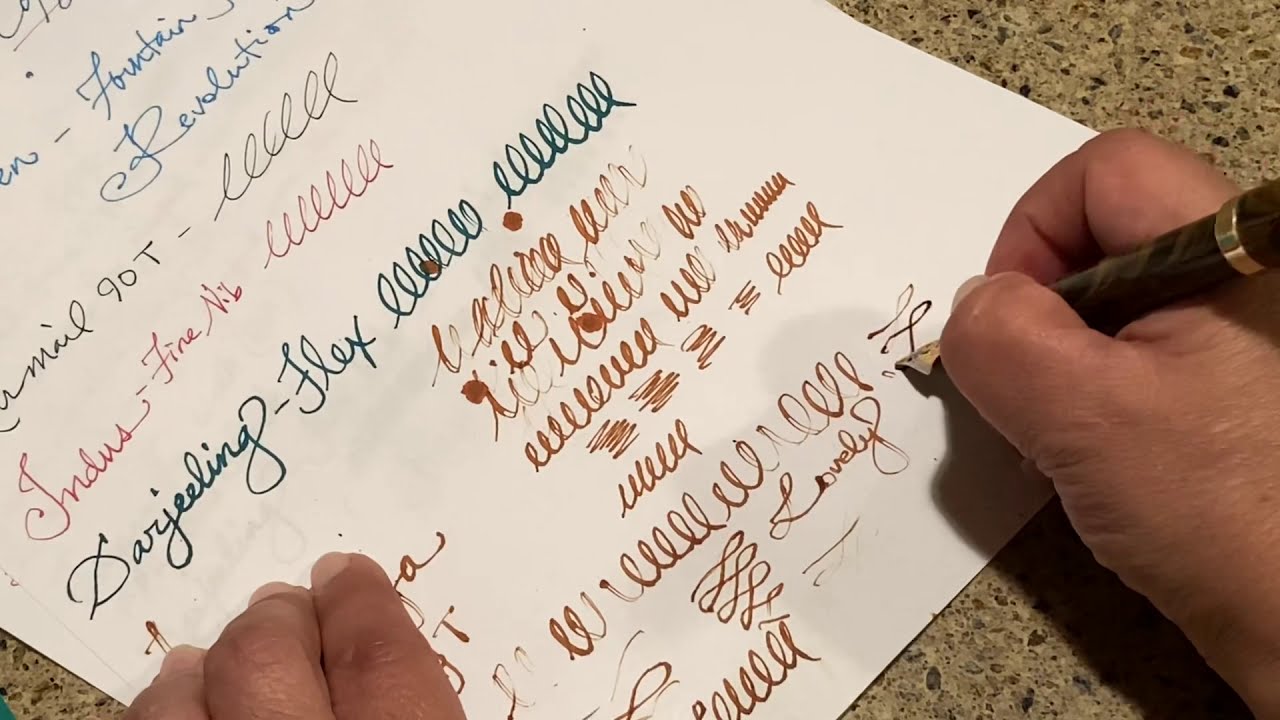 Fountain
en - Revolution
mail 90T -
Indus - Fine Nib
Darjeeling - Flex
Lovely